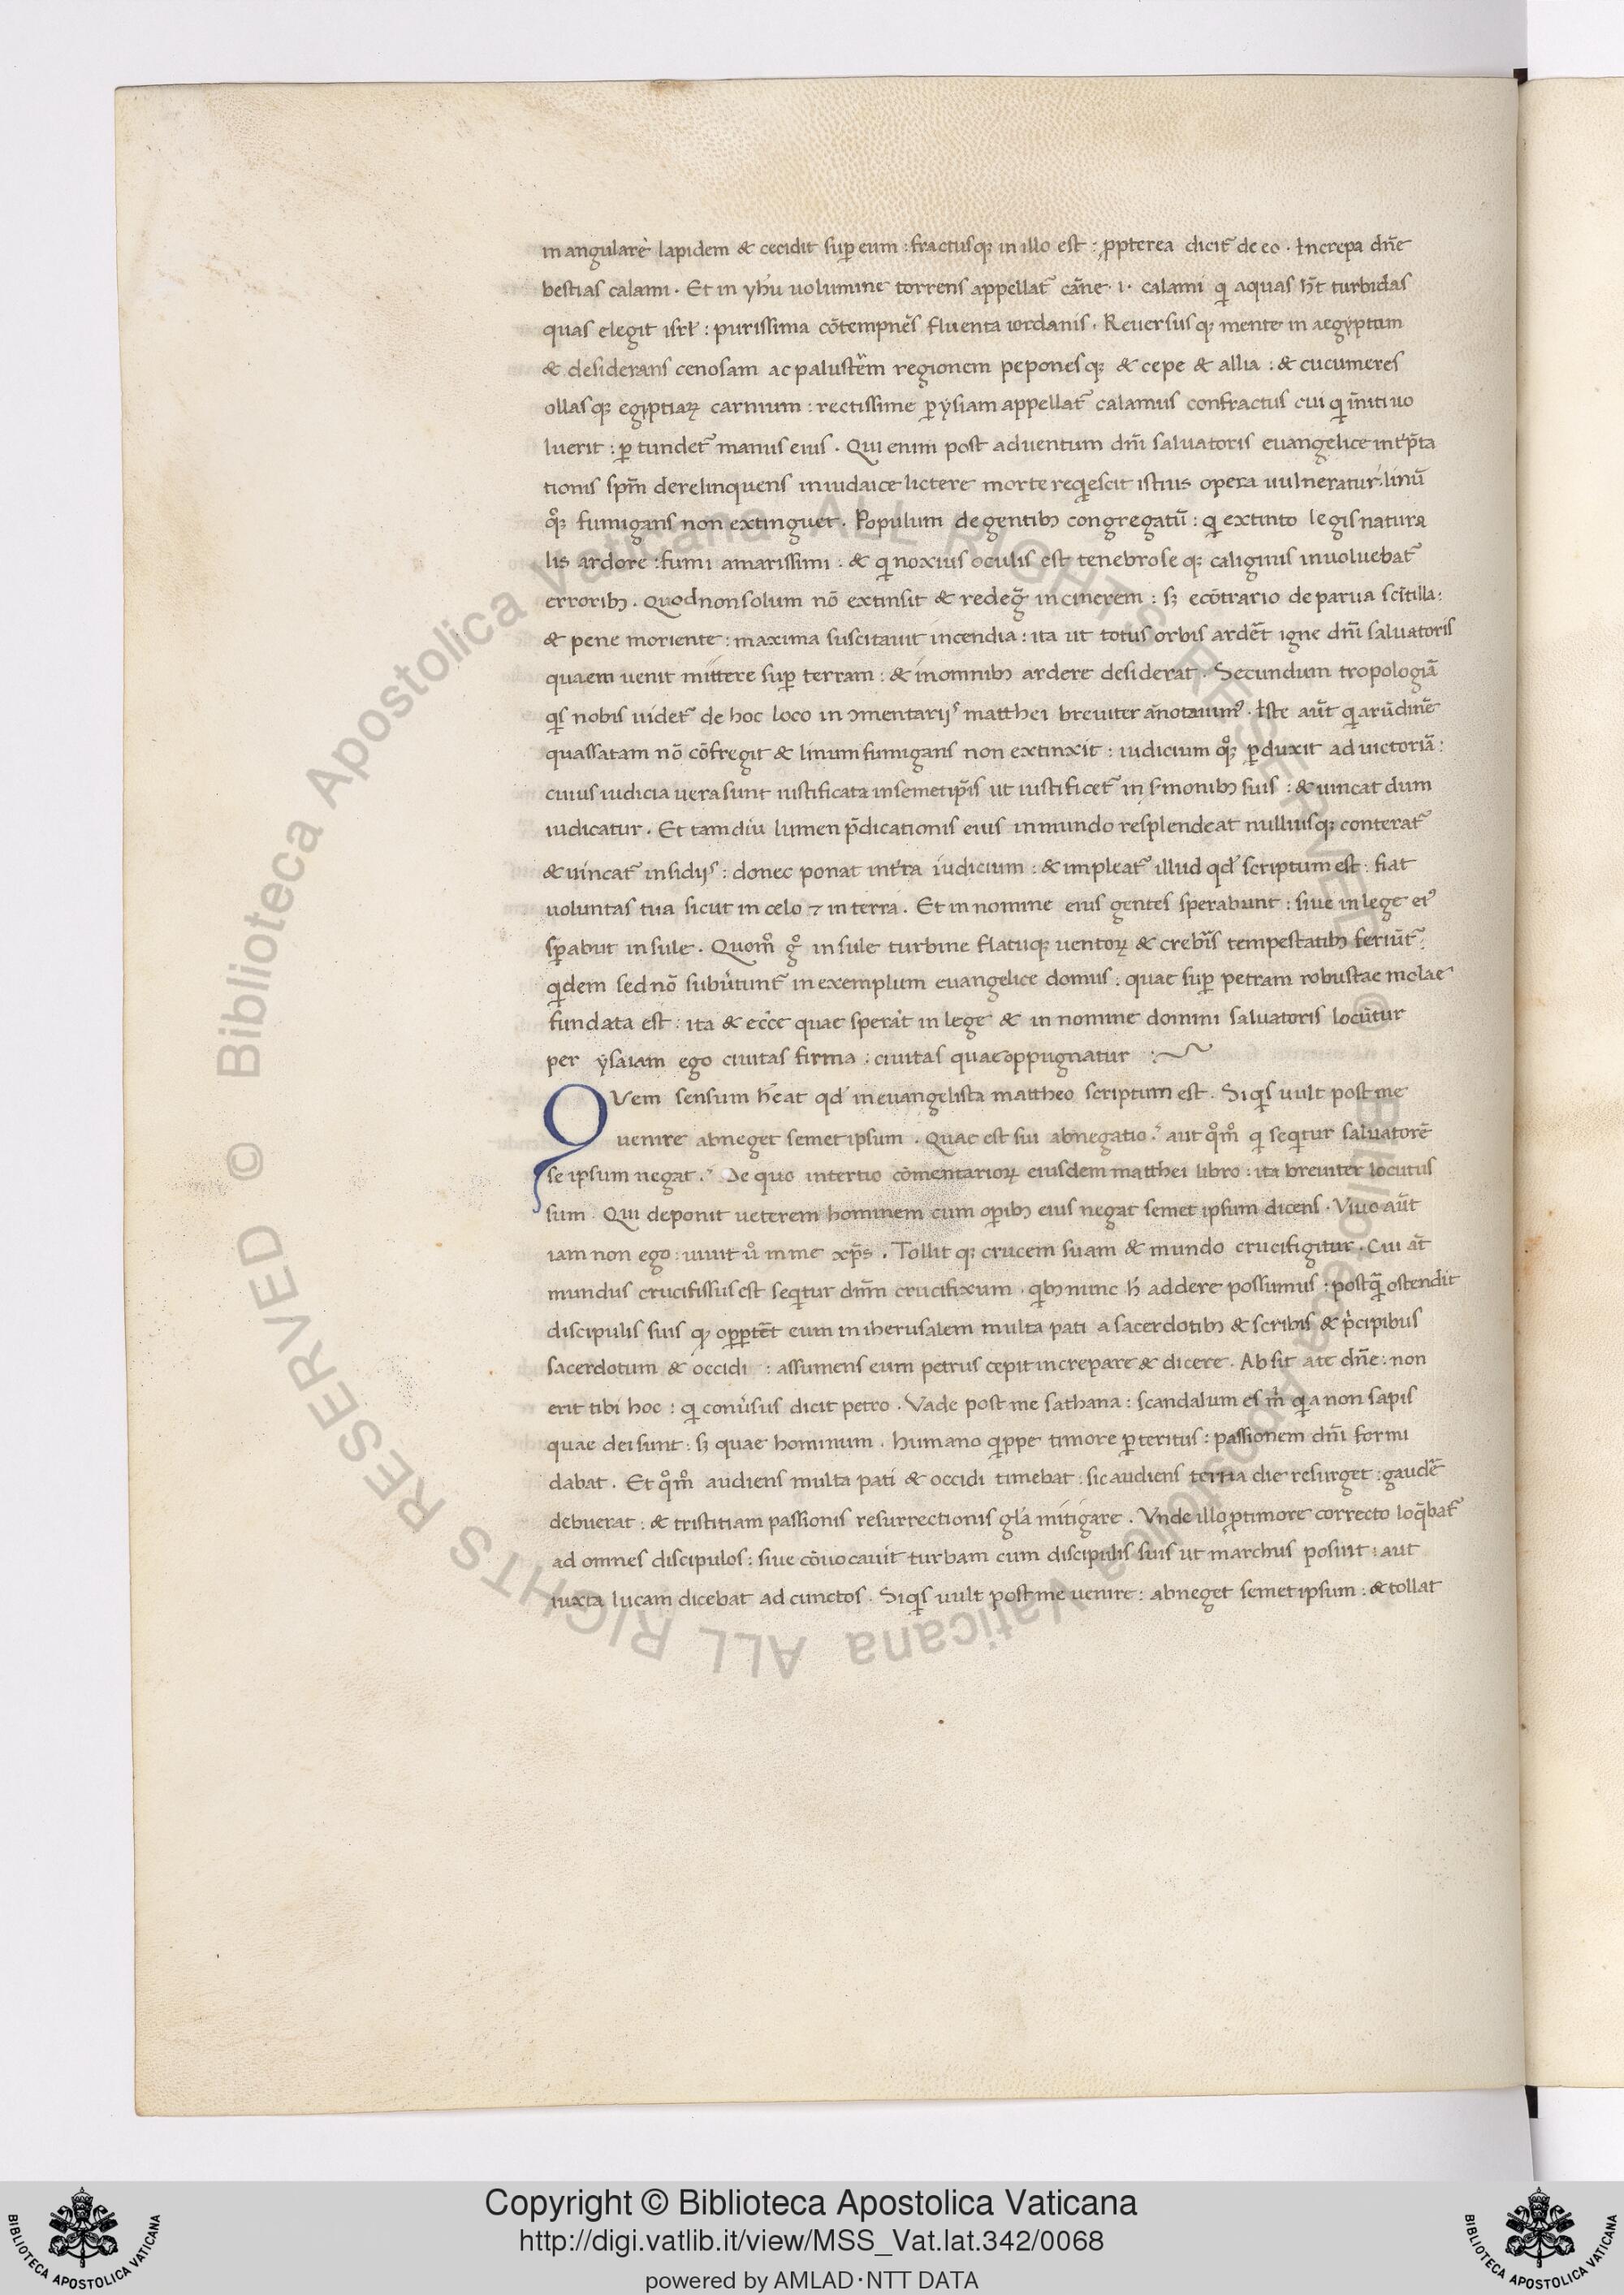 in angularē lapidem & cecidit suꝑ eum : fractusqꝫ in illo est : ꝓpterea dicit̃ de eo . Increpa dñe
bestias calami . Et in yhu uolumine torrens appellat̃ cãne · i · calami qͥ aquas hñt turbidas
quas elegit isrl̃ : purissima cõtempnẽs fluenta iordanis . Reuersusqꝫ mente in aegyptum
& desiderans cenosam ac palustrẽm regionem peponesqꝫ & cepe & allia : & cucumeres
ollasqꝫ egiptiaꝝ carnium : rectissime ꝑ ysiam appellat̃ calamus confractus cui qͥ initi uo
luerit : ꝑtundet̃ manus eius . Qui enim post aduentum dñi saluatoris euangelice int̃p̃ta
tionis sp̃m derelinquens in iudaice lictere morte reqͥescit istius opera uulneratur : linũ
qͦꝫ fumigans non extinguet . Populum de gentibꝫ congregatũ : qͥ extinto legis natura
lis ardore : fumi amarissimi : & qͥ noxius oculis est tenebroseqꝫ caliginis inuoluebat̃
erroribꝫ . Quod non solum nõ extinsit & redeg̃ in cinerem : sꝫ ecõtrario de parua scĩtilla :
& pene moriente : maxima suscitauit incendia : ita ut totus orbis ardẽt igne dñi saluatoris
quaem uenit mittere suꝑ terram : & in omnibꝫ ardere desiderat . Secundum tropologiã
qͥs nobis uidet̃ de hoc loco in ꝯmentarijs matthei breuiter ãnotauimꝰ . Iste aũt qͥ arũdinẽ
quassatam nõ cõfregit & linum fumigans non extinxit : iudicium qͦꝫ ꝑduxit ad uictoriã :
cuius iudicia uera sunt iustificata in semetip̃is ut iustificet̃ in s̃monibꝫ suis : & uincat dum
iudicatur . Et tam diu lumen p̃dicationis eius in mundo resplendeat nulliusqꝫ conterat̃
& uincat̃ insidijs : donec ponat int̃ra iudicium : & impleat̃ illud qd̃ scriptum est : fiat
uoluntas tua sicut in celo ⁊ in terra . Et in nomine eius gentes sperabunt : siue in lege eiꝰ
sꝑabũt insule . Quom̊ gͦ insule turbine flatuqꝫ uentoꝝ & crebĩs tempestatibꝫ feriũt̃
qͥdem sed nõ subũtunt̃ in exemplum euangelice domus : quae suꝑ petram robustae molae
fundata est : ita & ecc̃e quae sperãt in lege & in nomine domini saluatoris locũtur
per ysaiam ego ciuitas firma : ciuitas quae oppugnatur :~
QVem sensum h̃eat qd̃ in euangelista mattheo scriptum est . Siqͥs uult post me
uenire abneget semet ipsum . Quae est sui abnegatio ? aut qͦm̊ qͥ seqͥtur saluatorẽ
se ipsum negat ? De quo in tertio cõmentarioꝝ eiusdem matthei libro : ita breuiter locutus
sum . Qui deponit ueterem hominem cum oꝑibꝫ eius negat semet ipsum dicens . Viuo aũt
iam non ego : uiuit u̾ in me xp̃s . Tollit qꝫ crucem suam & mundo crucifigitur . Cui aũt
mundus crucifissus est seqͥtur dñm crucifixum . qͥbꝫ nunc h̃ addere possumus : postqͣ̃ ostendit
discipulis suis qꝫ opꝑtẽt eum in iherusalem multa pati a sacerdotibꝫ & scribis & pͥcipibus
sacerdotum & occidi : assumens eum petrus cepit increpare & dicere . Absit a te dñe : non
erit tibi hoc : qͥ conũsus dicit petro . Vade post me sathana : scandalum es m̃ qͥa non sapis
quae dei sunt : sꝫ quae hominum . humano qͥppe timore ꝑteritus : passionem dñi formi
dabat . Et qͦm̊ audiens multa pati & occidi timebat : sic audiens tertia die resurget : gaudẽ
debuerat : & tristitiam passionis resurrectionis gl̃a mitigare . Vnde illo ꝓ timore correcto loqͥbat̃
ad omnes discipulos : siue cõuocauit turbam cum discipulis suis ut marchus posuit : aut
iuxta lucam dicebat ad cunctos . Siqͥs uult post me uenire : abneget semet ipsum : & tollat
© Biblioteca Apostolica Vaticana ALL RIGHTS RESERVED © Biblioteca Apostolica Vaticana ALL RIGHTS RESERVED
Copyright © Biblioteca Apostolica Vaticana
http://digi.vatlib.it/view/MSS_Vat.lat.342/0068
powered by AMLAD·NTT DATA
BIBLIOTECA APOSTOLICA VATICANA
BIBLIOTECA APOSTOLICA VATICANA